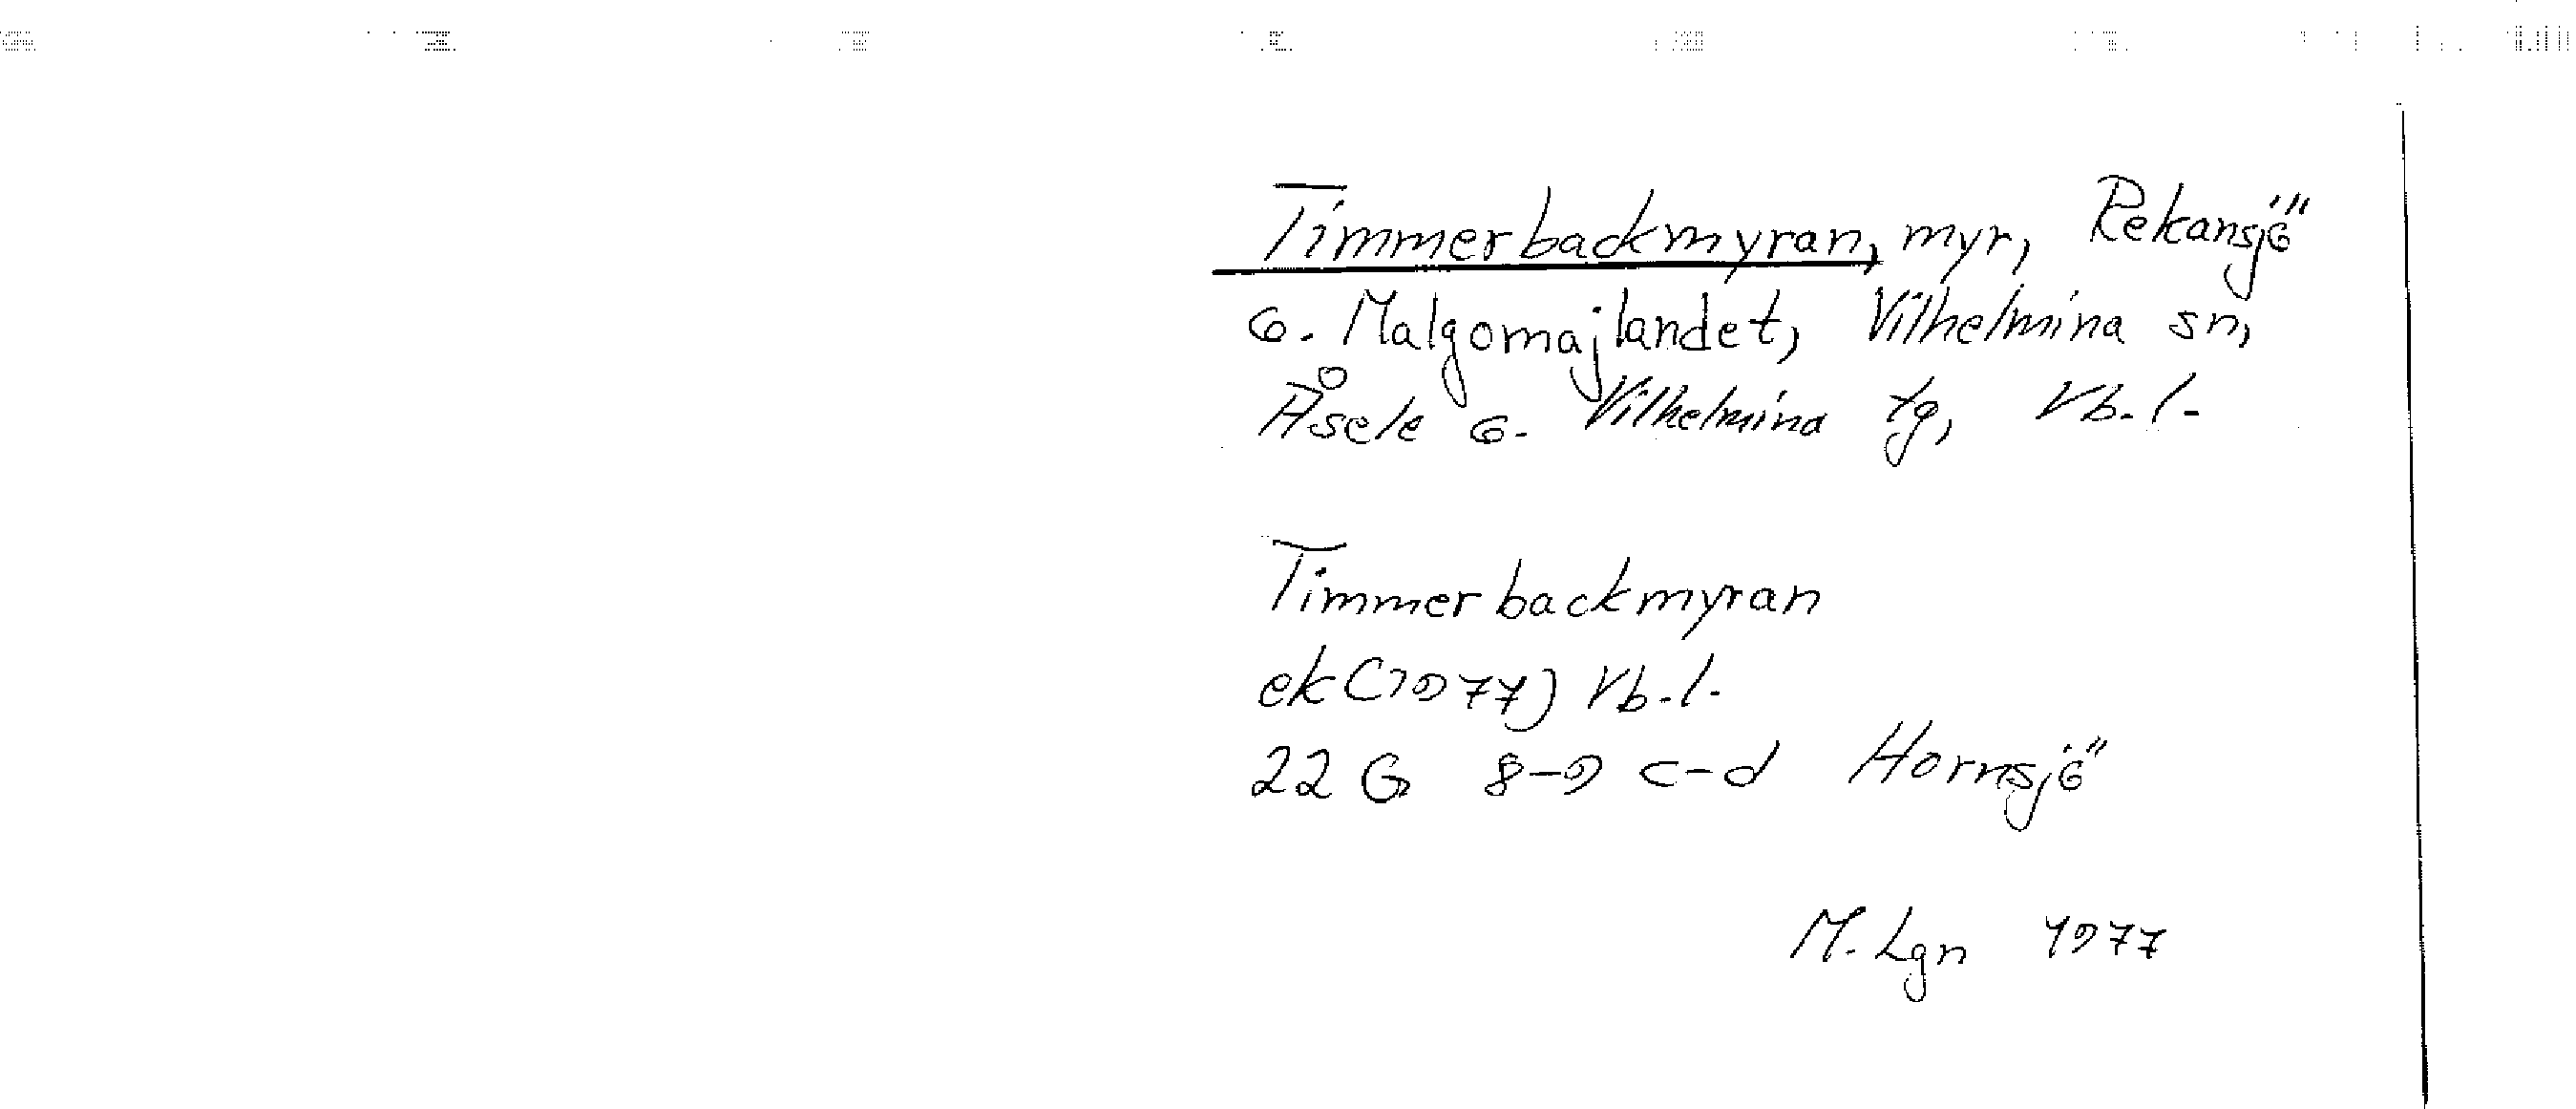 Timmerbackmyran, myr, Rekansjö
o. Malgomajlandet, Vilhelmina sn,
Åsele o. Vilhelmina tg, Vb. l.
Timmerbackmyran
ek (1977) Vb. l.
22 G 8-9 c-d Hornsjö
M. Lgn 1977